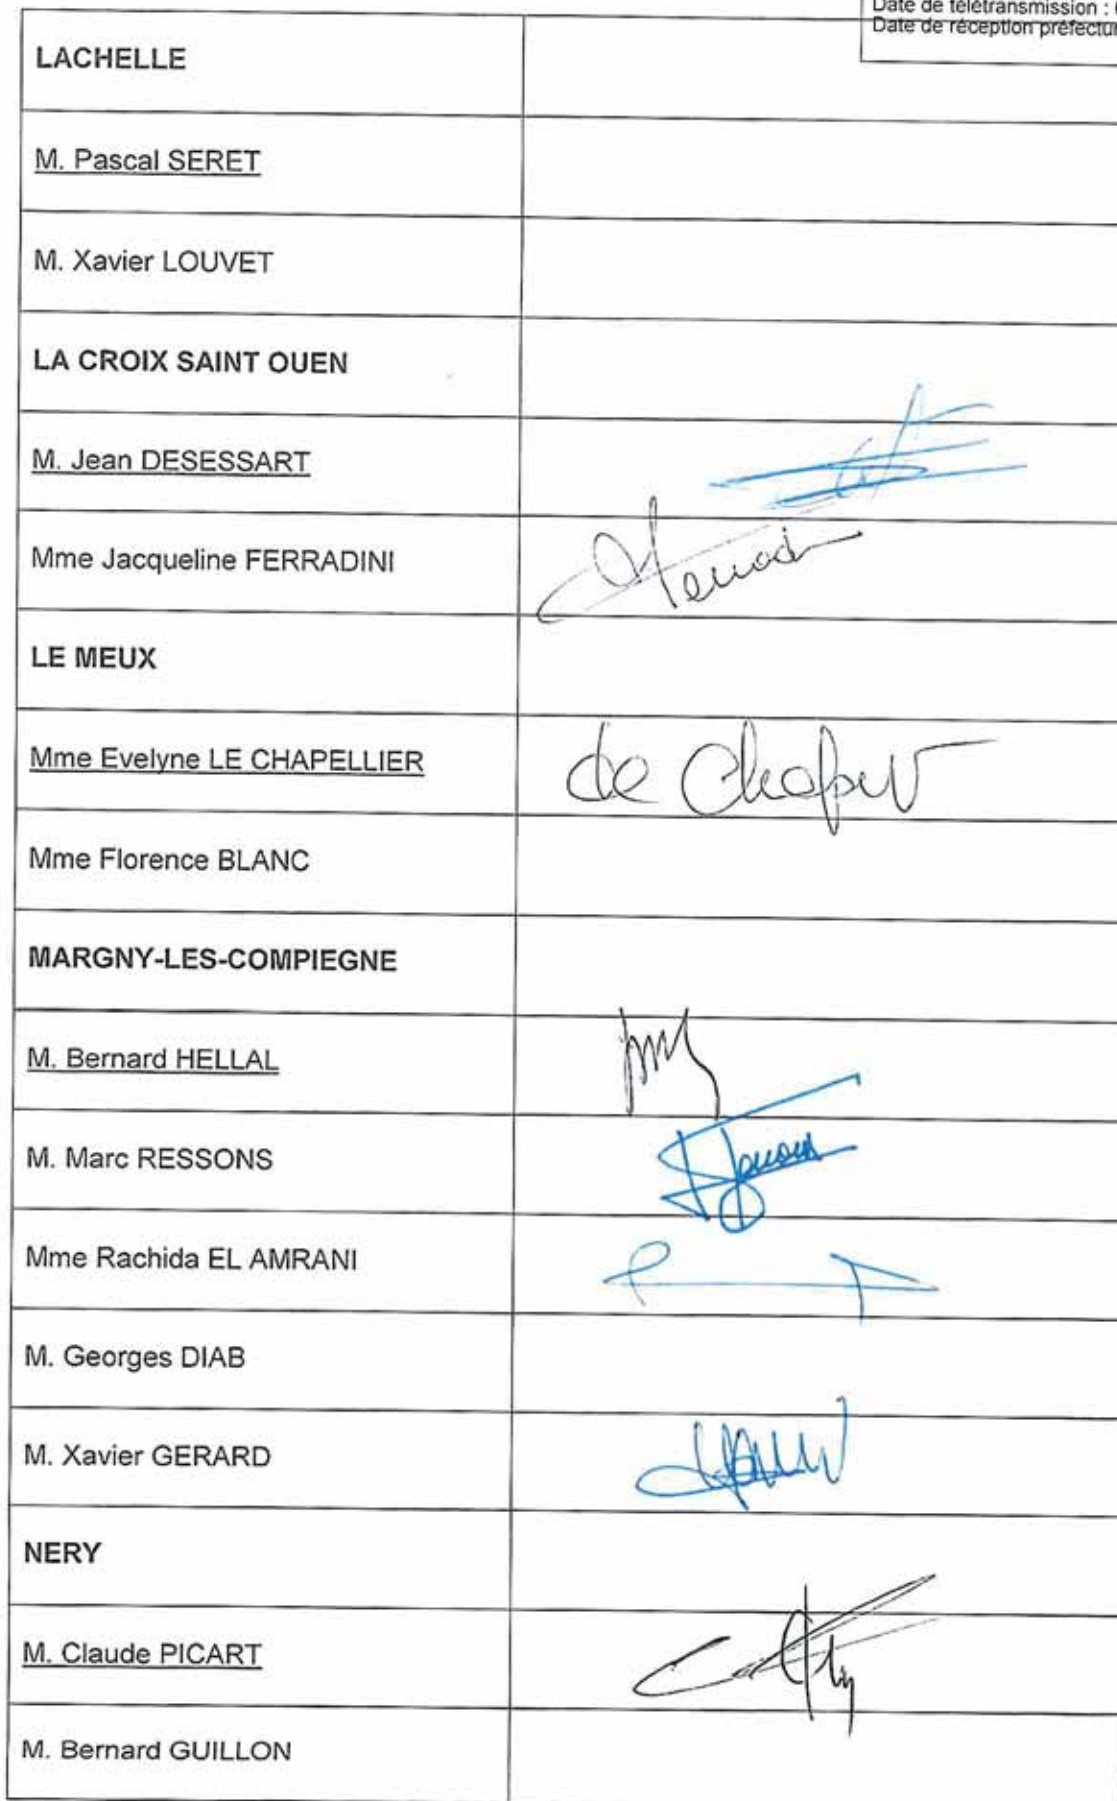 Date de télétransmission :
Date de réception préfectur
LACHELLE
M. Pascal SERET
M. Xavier LOUVET
LA CROIX SAINT OUEN
M. Jean DESESSART
Mme Jacqueline FERRADINI
LE MEUX
Mme Evelyne LE CHAPELLIER
Mme Florence BLANC
MARGNY-LES-COMPIEGNE
M. Bernard HELLAL
M. Marc RESSONS
Mme Rachida EL AMRANI
M. Georges DIAB
M. Xavier GERARD
NERY
M. Claude PICART
M. Bernard GUILLON